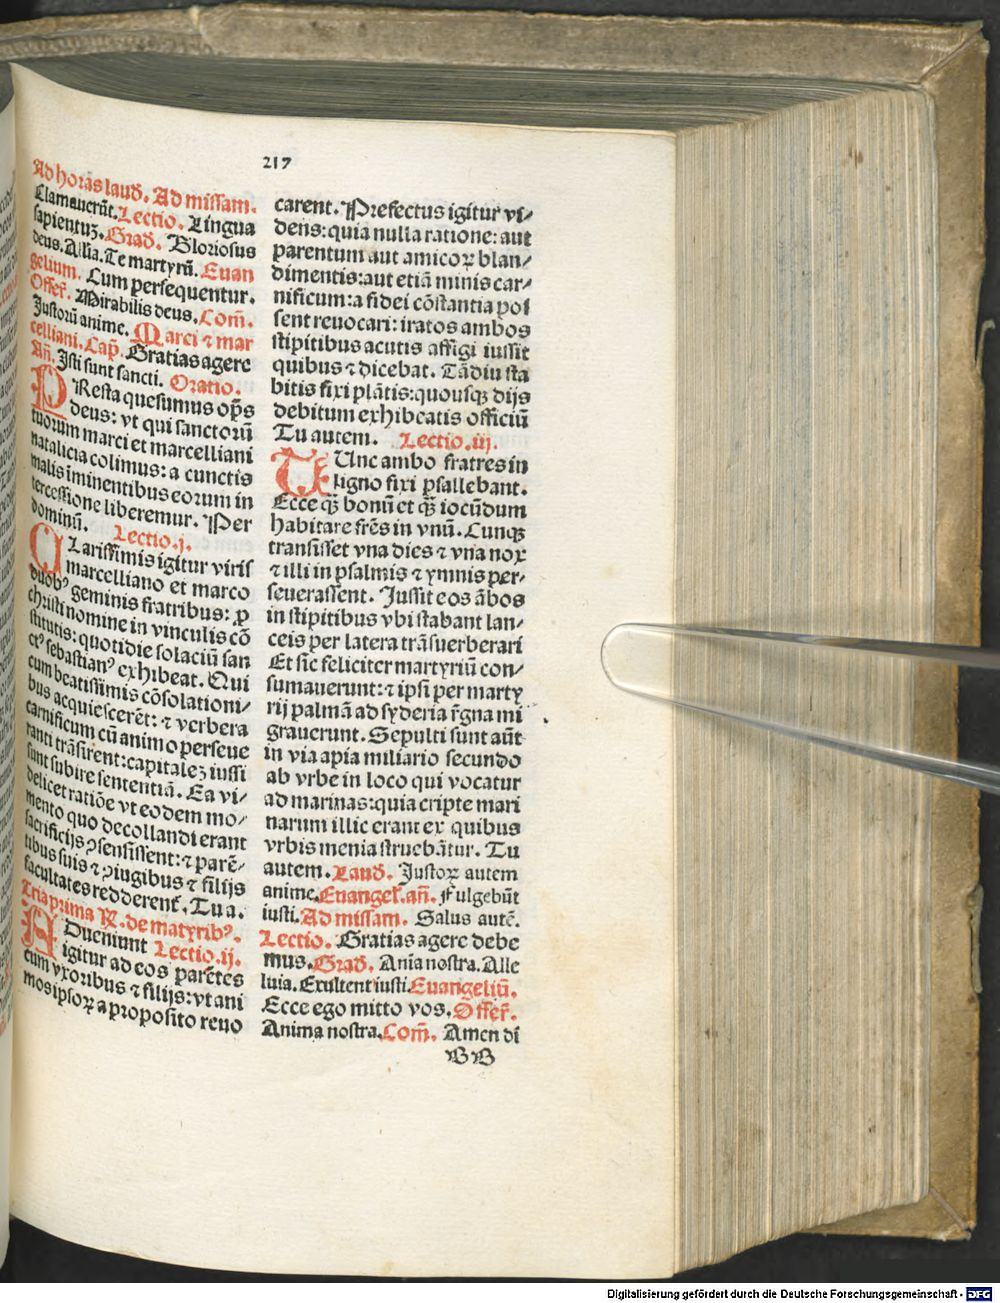 217
Ad horas laud̄. Ad missam.
Clamauerūt. Lectio. Lingua
sapientuꝫ. Grad̄. Gloriosus
deus. Allia. Te martyrū. Euan
gelium. Cum persequentur.
Offer̄. Mirabilis deus. Com̄.
Justorū anime. Marci ⁊ mar
celliani. Cap̄. Gratias agere
An̄. Isti sunt sancti. Oratio.
PResta quesumus op̄s
deus: vt qui sanctorū
tuorum marci et marcelliani
natalicia colimus: a cunctis
malis īminentibus eorum in
tercessione liberemur. Per
dominū. Lectio.j.
CLarissimis igitur viris
marcelliano et marco
duobꝰ geminis fratribus: ꝓ
christi nomine in vinculis cō
stitutis: quotidie solaciū san
ctꝰ sebastianꝰ exhibeat. Qui
cum beatissimis cōsolationi-
bus acquiescerēt: ⁊ verbera
carnificum cū animo perseue
ranti trāsirent: capitaleꝫ iussi
sunt subire sententiā. Ea vi-
delicet ratiōe vt eodem mo-
mento quo decollandi erant
sacrificijs ꝯsensissent: ⁊ parē-
tibus suis ⁊ ꝯiugibus ⁊ filijs
facultates redderent̄. Tu a.
Tria prima R̄. de martyribꝰ.
ADueniunt Lectio.ij.
igitur ad eos parētes
cum vxoribus ⁊ filijs: vt ani
mos ipsoꝝ a proposito reuo
carent. Prefectus igitur vi-
dens: quia nulla ratione: aut
parentum aut amicoꝝ blan-
dimentis: aut etiā minis car-
nificum: a fidei cōstantia pos
sent reuocari: iratos ambos
stipitibus acutis affigi iussit
quibus ⁊ dicebat. Tādiu sta
bitis fixi plātis: quousqꝫ dijs
debitum exhibeatis officiū
Tu autem. Lectio.iij.
TUnc ambo fratres in
ligno fixi psallebant.
Ecce qꝫ bonū et qꝫ iocūdum
habitare frēs in vnū. Cunqꝫ
transisset vna dies ⁊ vna nox
⁊ illi in psalmis ⁊ ymnis per-
seuerassent. Jussit eos ābos
in stipitibus vbi stabant lan-
ceis per latera trāsuerberari
Et sic feliciter martyriū con-
sumauerunt: ⁊ ipsi per marty
rij palmā ad syderia r̄gna mi
grauerunt. Sepulti sunt aūt
in via apia miliario secundo
ab vrbe in loco qui vocatur
ad marinas: quia cripte mari
narum illic erant ex quibus
vrbis menia struebātur. Tu
autem. Laud̄. Justoꝝ autem
anime. Euangel̄. an̄. Fulgebūt
iusti. Ad missam. Salus autē.
Lectio. Gratias agere debe
mus. Grad̄. Anīa nostra. Alle
luia. Exultent iusti. Euangeliū.
Ecce ego mitto vos. Offer̄.
Anima nostra. Com̄. Amen di
BB
Digitalisierung gefördert durch die Deutsche Forschungsgemeinschaft - DFG